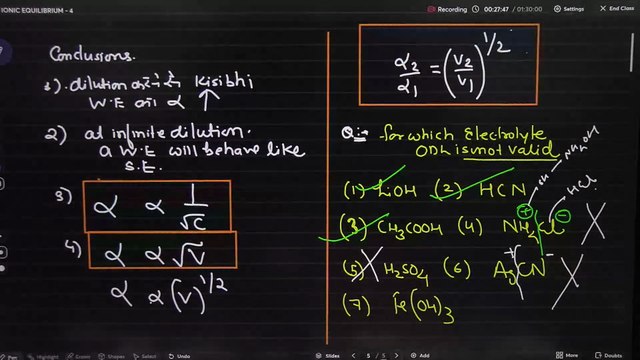 IONIC EQUILIBRIUM - 4
Recording
00:27:47 / 01:30:00
Settings
End Class
Conclusions.
1). dilution करने से kisibhi
W.E का α ↑
2) at infinite dilution.
a W.E will behave like
S.E.
3) α ∝ 1/√C
4) α ∝ √V
α ∝ (V)^1/2
α2/α1 = (V2/V1)^1/2
Q:- for which Electrolyte
ODL is not valid
(1) LiOH (2) HCN
NH4OH
HCl
(3) CH3COOH (4) NH4Cl
(5) H2SO4 (6) AgCN
(7) Fe(OH)3
Pen
Highlighter
Crop
Shapes
Delete
Undo
Redo
5 / 5